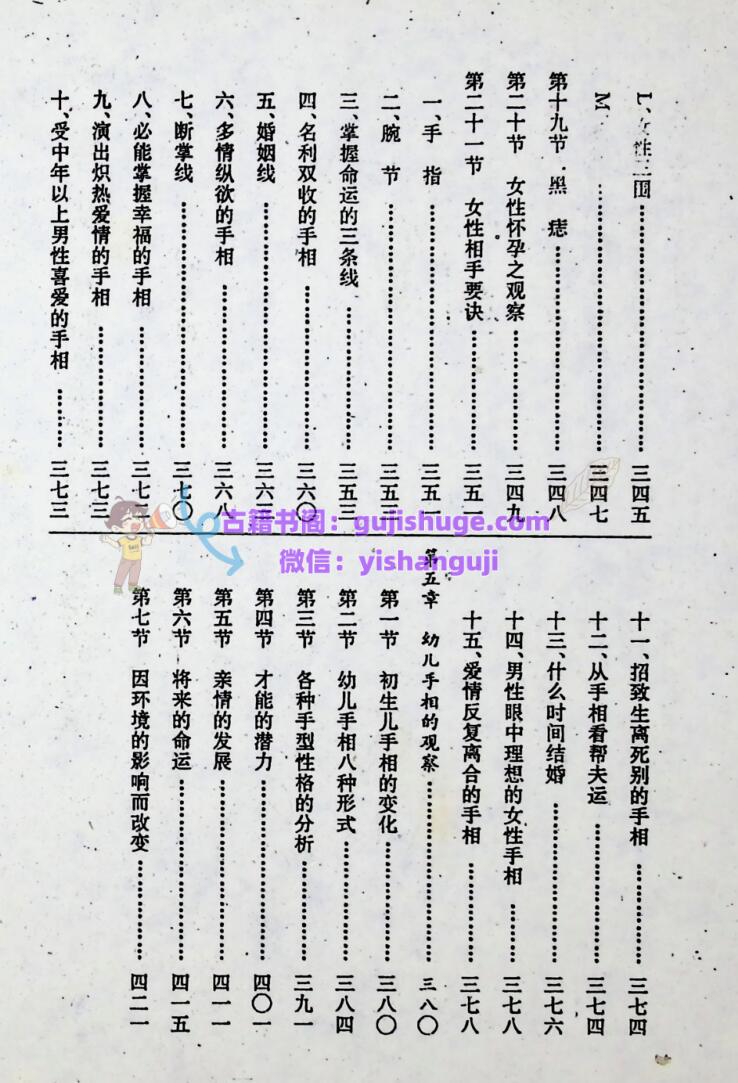 L、女性三围……三四五
M……三四七
第十九节 黑痣……三四八
第二十节 女性怀孕之观察……三四九
第二十一节 女性相手要诀……三五一
一、手指……三五一
二、腕节……三五三
三、掌握命运的三条线……三五三
四、名利双收的手相……三六〇
五、婚姻线……三六三
六、多情纵欲的手相……三六八
七、断掌线……三七〇
八、必能掌握幸福的手相……三七二
九、演出炽热爱情的手相……三七三
十、受中年以上男性喜爱的手相……三七三
十一、招致生离死别的手相……三七四
十二、从手相看帮夫运……三七四
十三、什么时间结婚……三七六
十四、男性眼中理想的女性手相……三七八
十五、爱情反复离合的手相……三七八
第五章 幼儿手相的观察……三八〇
第一节 初生儿手相的变化……三八〇
第二节 幼儿手相八种形式……三八四
第三节 各种手型性格的分析……三九一
第四节 才能的潜力……四〇一
第五节 亲情的发展……四一一
第六节 将来的命运……四一五
第七节 因环境的影响而改变……四二一
古籍书阁：gujishuge.com
微信：yishanguji